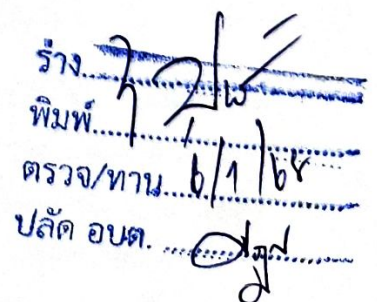 ร่าง
พิมพ์
ตรวจ/ทาน 6/1/68
ปลัด อบต.